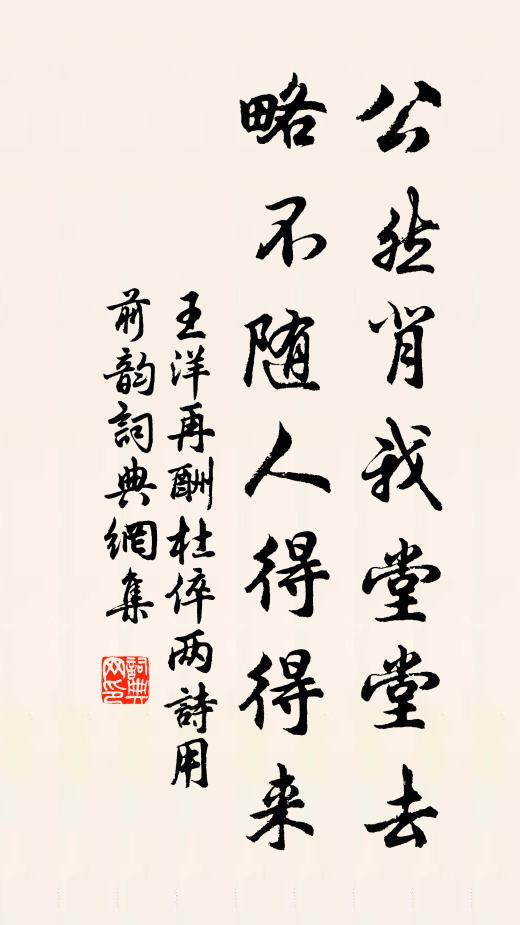 公然背我堂堂去
略不随人得得来
王洋再酬杜倅两詩用
前韵詞典網集
詞典
网印